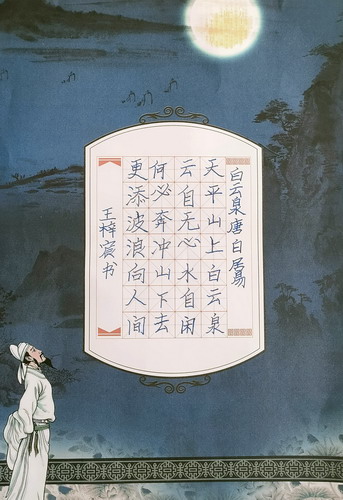 白云泉唐白居易
天平山上白云泉
云自无心水自闲
何必奔冲山下去
更添波浪向人间
王梓宾书